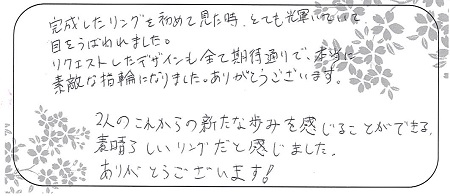 完成したリングを初めて見た時、とても光輝いていて
目をうばわれました。
リクエストしたデザインも全て期待通りで、本当に
素敵な指輪になりました。ありがとうございます。
2人のこれからの新たな歩みを感じることができる、
素晴らしいリングだと感じました。
ありがとうございます!